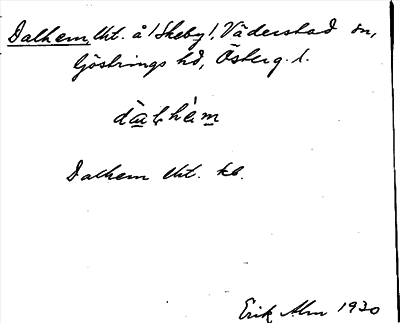 Dalhem, lht. å 1 Skeby 1, Väderstad sn,
Göstrings hd, Österg. l.
dàlhèm
Dalhem lht. kb.
Erik Alm 1930